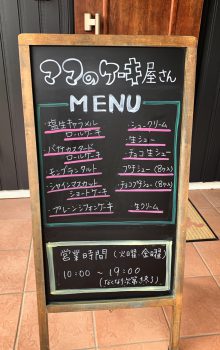 ママのケーキ屋さん
MENU
・塩生キャラメル
ロールケーキ
・バナナカスタード
ロールケーキ
・モンブランタルト
・シャインマスカット
ショートケーキ
・プレーンシフォンケーキ
・シュークリーム
・生シュー
・チョコ生シュー
・プチシュー(8ヶ入)
・チョコプチシュー(8ヶ入)
・生クリーム
営業時間(火曜・金曜)
10:00〜19:00
(なくなり次第終了)